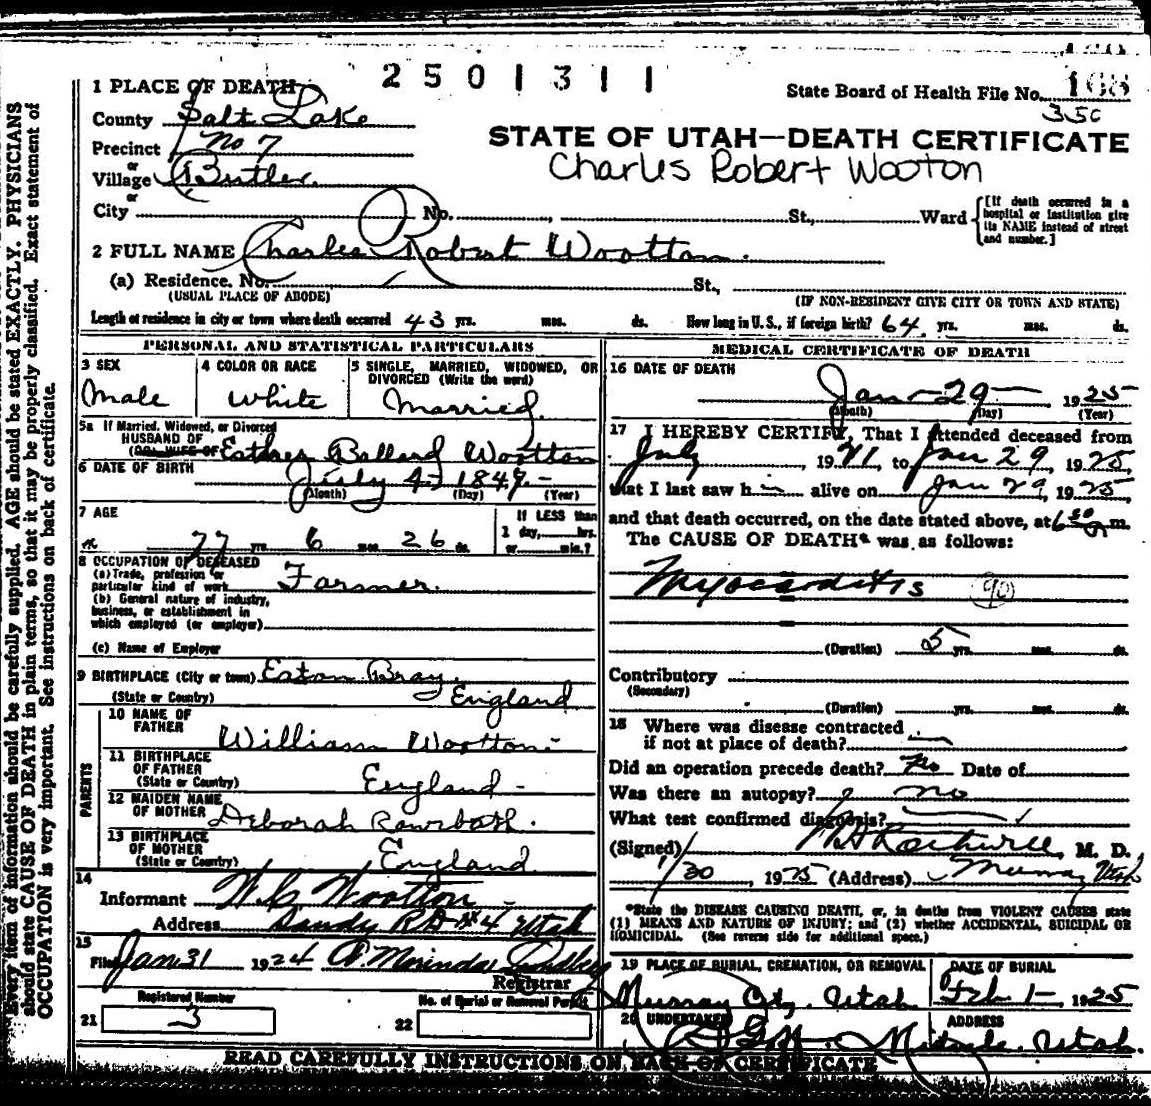 2501311
State Board of Health File No. 168
350
STATE OF UTAH—DEATH CERTIFICATE
Charles Robert Wooton
1 PLACE OF DEATH
County Salt Lake
Precinct No 7
or
Village Butler.
or
City No. , St., Ward
[If death occurred in a
hospital or institution give
its NAME instead of street
and number.]
2 FULL NAME Charles Robert Wootton.
(a) Residence. No. St.,
(USUAL PLACE OF ABODE) (IF NON-RESIDENT GIVE CITY OR TOWN AND STATE)
Length of residence in city or town where death occurred 43 yrs. mos. ds. How long in U. S., if foreign birth? 64 yrs. mos. ds.
PERSONAL AND STATISTICAL PARTICULARS
3 SEX
Male
4 COLOR OR RACE
White
5 SINGLE, MARRIED, WIDOWED, OR
DIVORCED (Write the word)
Married
5a If Married, Widowed, or Divorced
HUSBAND OF
(OR) WIFE OF Esther Ballard Wootton
6 DATE OF BIRTH July 4 1847
(Month) (Day) (Year)
7 AGE
77 yrs. 6 mos. 26 ds.
If LESS than
1 day, hrs.
or min.?
8 OCCUPATION OF DECEASED
(a) Trade, profession or
particular kind of work Farmer.
(b) General nature of industry,
business, or establishment in
which employed (or employer)
(c) Name of Employer
9 BIRTHPLACE (City or town) Eaton Bray.
(State or Country) England
PARENTS
10 NAME OF
FATHER William Wootton
11 BIRTHPLACE
OF FATHER
(State or Country) England
12 MAIDEN NAME
OF MOTHER Deborah
13 BIRTHPLACE
OF MOTHER
(State or Country) England
14
Informant W. C. Wootton
Address Sandy RD #4 Utah
15
Filed Jan 31 1924
Registrar
Registered Number
21 3
No. of Burial or Removal Permit
22
MEDICAL CERTIFICATE OF DEATH
16 DATE OF DEATH
Jan 29 1925
(Month) (Day) (Year)
17 I HEREBY CERTIFY, That I attended deceased from
July, 1921, to Jan 29, 1925,
that I last saw him alive on Jan 29, 1925,
and that death occurred, on the date stated above, at 6 m.
The CAUSE OF DEATH* was as follows:
Myocarditis 90
(Duration) 5 yrs. mos. ds.
Contributory
(Secondary)
(Duration) yrs. mos. ds.
18 Where was disease contracted
if not at place of death?
Did an operation precede death? No Date of
Was there an autopsy? no
What test confirmed diagnosis?
(Signed) M. D.
1/30, 1925 (Address) Murray Utah
*State the DISEASE CAUSING DEATH, or, in deaths from VIOLENT CAUSES state
(1) MEANS AND NATURE OF INJURY; and (2) whether ACCIDENTAL, SUICIDAL OR
HOMICIDAL. (See reverse side for additional space.)
19 PLACE OF BURIAL, CREMATION, OR REMOVAL
Murray City, Utah
DATE OF BURIAL
Feb 1 1925
20 UNDERTAKER
ADDRESS
Midvale, Utah.
READ CAREFULLY INSTRUCTIONS ON BACK OF CERTIFICATE
Every item of information should be carefully supplied. AGE should be stated EXACTLY. PHYSICIANS
should state CAUSE OF DEATH in plain terms, so that it may be properly classified. Exact statement of
OCCUPATION is very important. See instructions on back of certificate.